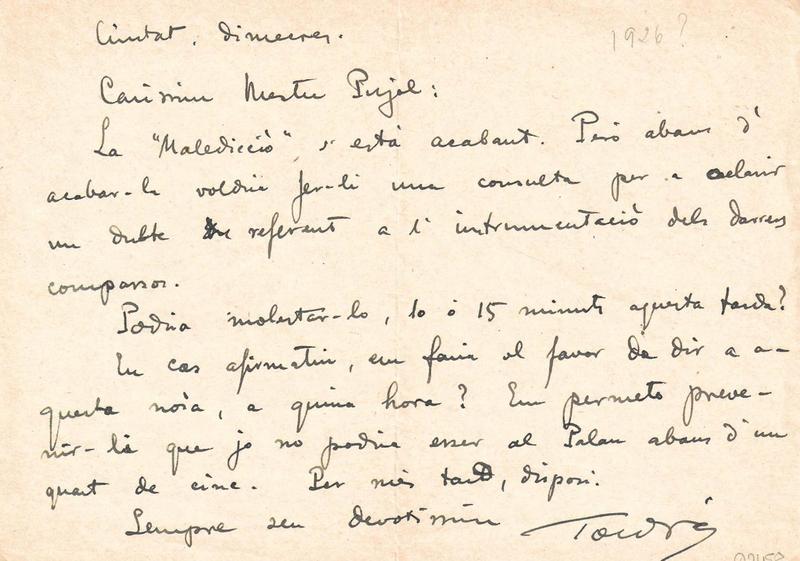 1926?
Ciutat, dimecres.
Caríssim Mestre Pujol:
La "Maledicció" s'està acabant. Però abans d'
acabar-la voldria fer-li una consulta per a aclarir
un dubte referent a l'instrumentació dels darrers
compassos.
Podria molestar-lo, 10 ó 15 minuts aquesta tarda?
En cas afirmatiu, em faria el favor de dir a a-
questa noia, a quina hora? Em permeto preve-
nir-li que jo no podria esser al Palau abans d'un
quart de cinc. Per més tard, disposi.
Sempre seu devotíssim
Toldrà